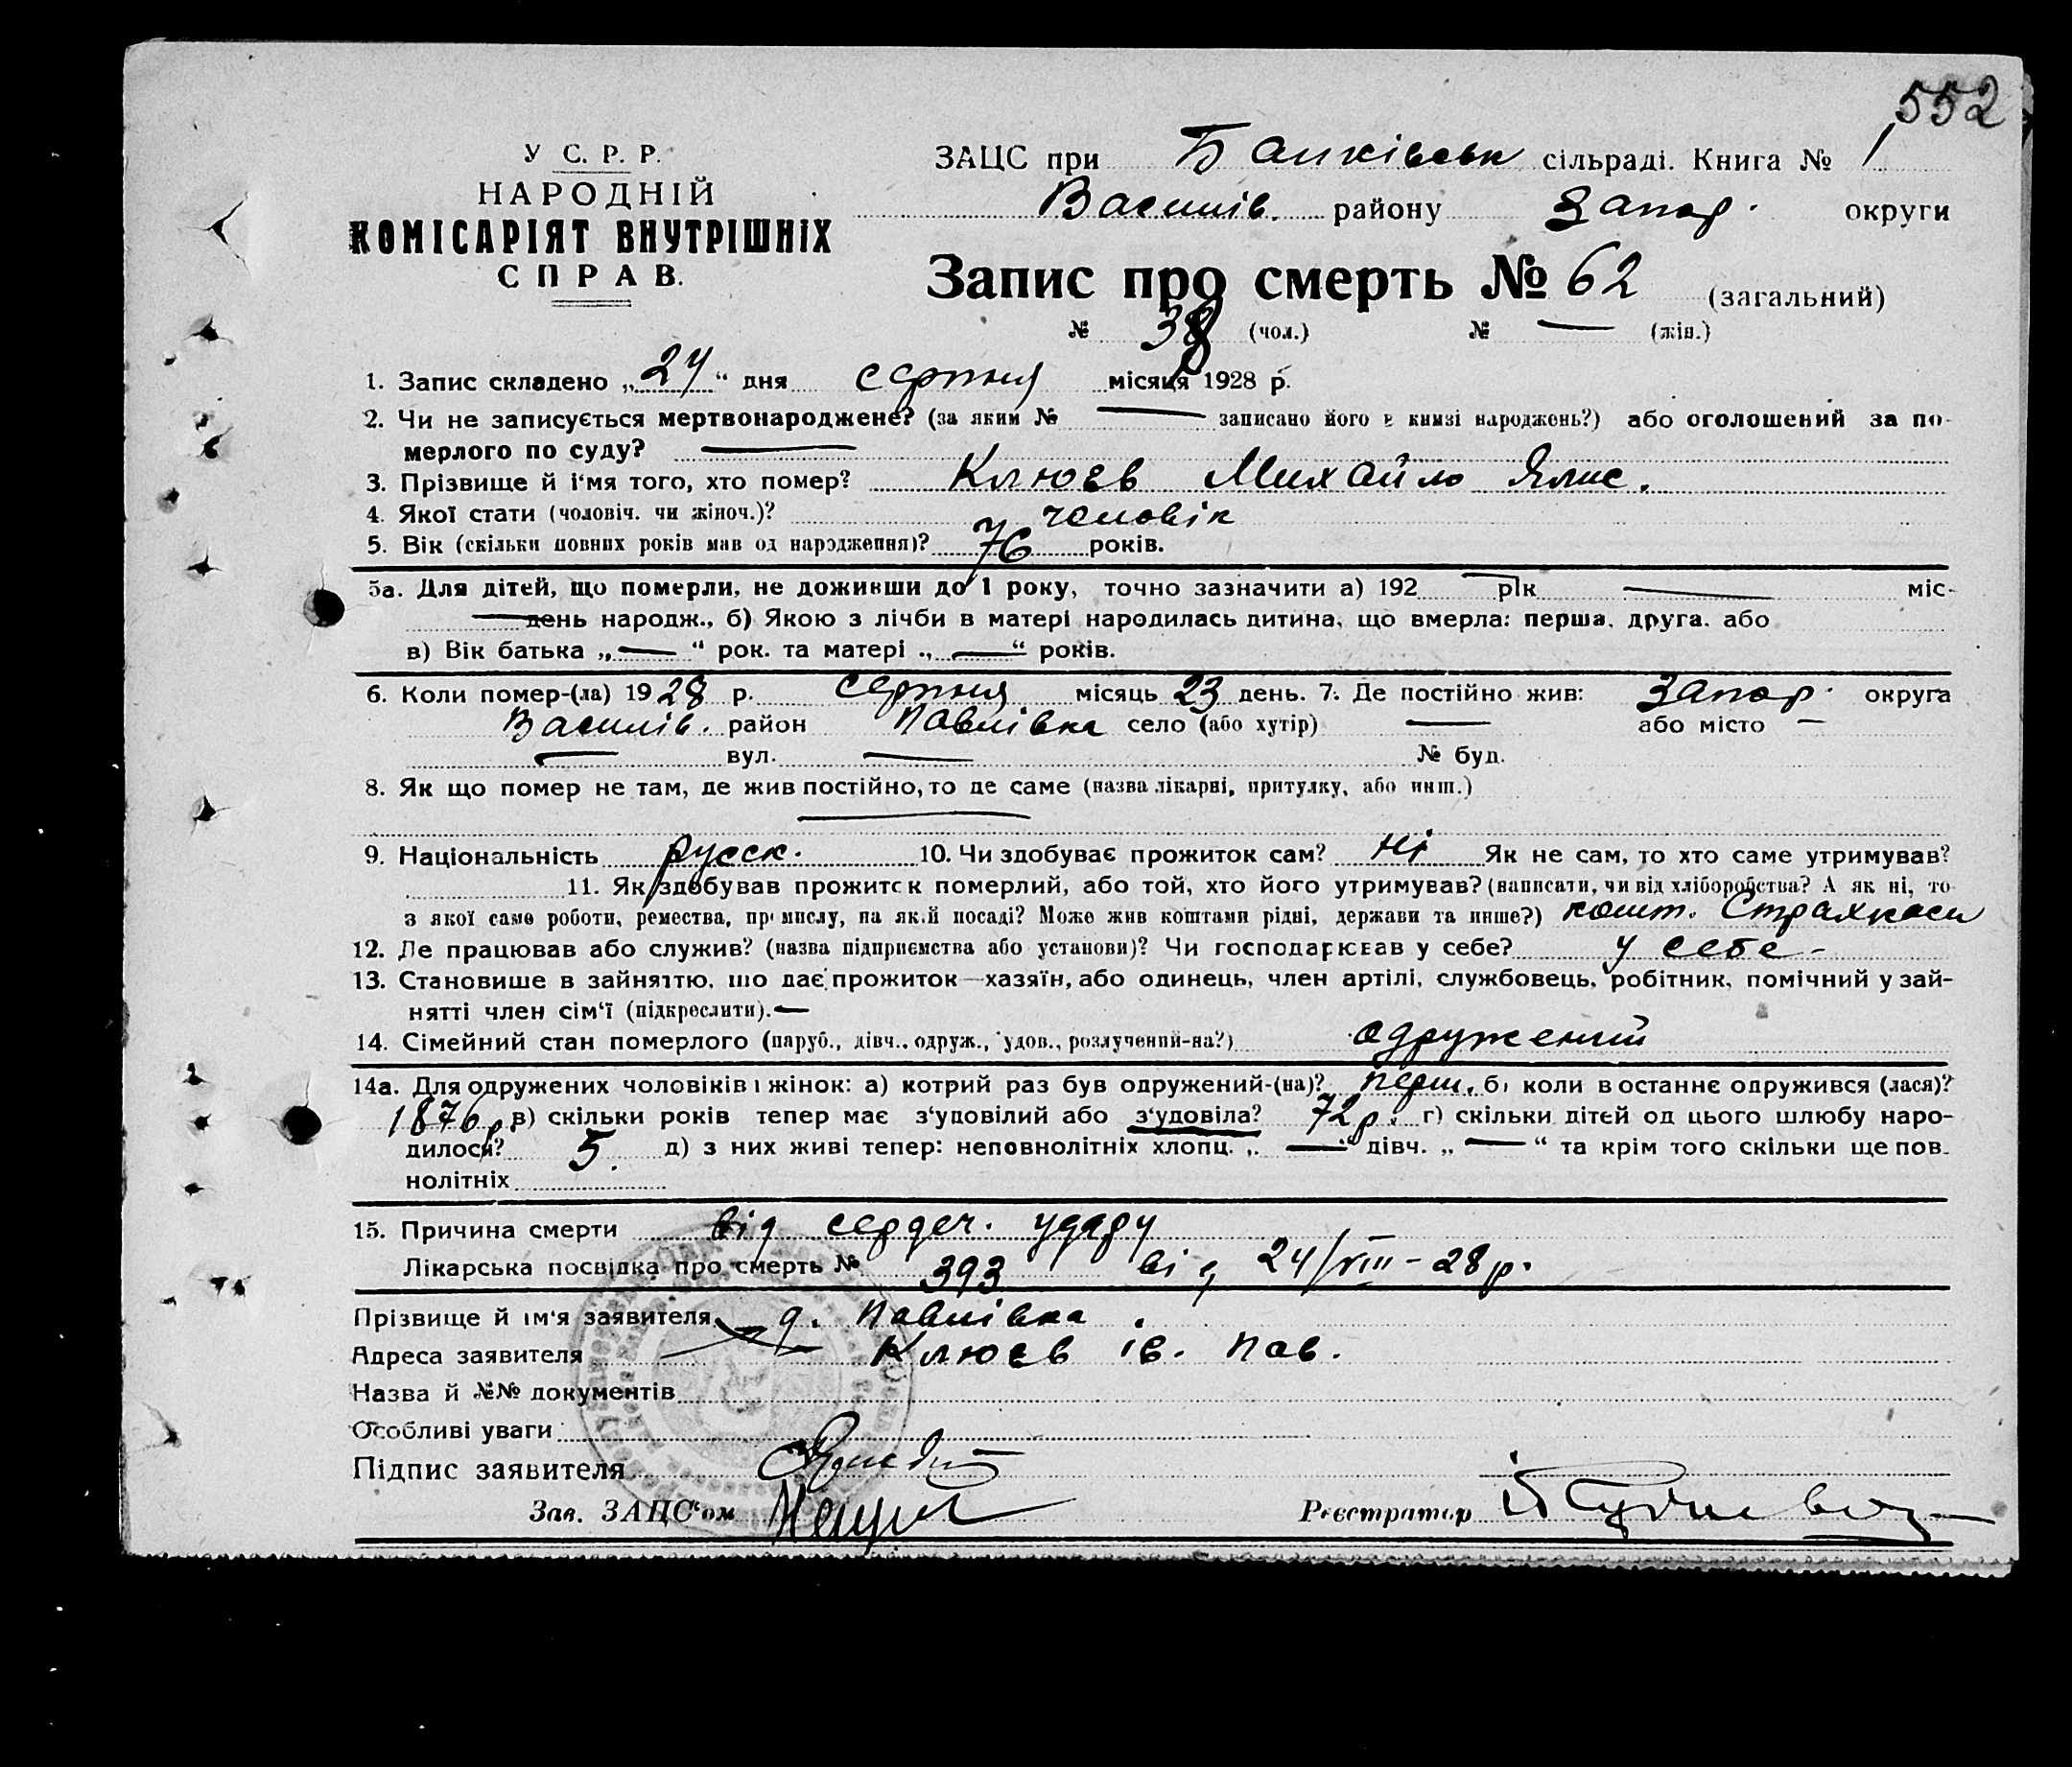 552
У С. Р. Р.
НАРОДНІЙ
КОМІСАРІЯТ ВНУТРІШНІХ
СПРАВ.
ЗАЦС при сільраді. Книга № 1
Василів. району Запор. округи
Запис про смерть № 62 (загальний)
№ 38 (чол.) № — (жін.)
1. Запис складено „27“ дня серпня місяця 1928 р.
2. Чи не записується мертвонароджене? (за яким № — записано його в книзі народжень?) або оголошений за по-
мерлого по суду? —
3. Прізвище й і'мя того, хто помер? Клюєв Михайло
4. Якої стати (чоловіч. чи жіноч.)? чоловік
5. Вік (скільки повних років мав од народження)? 76 років.
5а. Для дітей, що померли, не доживши до 1 року, точно зазначити а) 192 — рік — міс-
— день народж., б) Якою з лічби в матері народилась дитина, що вмерла: перша, друга, або
в) Вік батька „—“ рок. та матері „—“ років.
6. Коли помер-(ла) 1928 р. серпня місяць 23 день. 7. Де постійно жив: Запор. округа
Василів. район Павлівка село (або хутір) — або місто —
— вул. — № буд.
8. Як що помер не там, де жив постійно, то де саме (назва лікарні, притулку, або инш.)
—
9. Національність русск. 10. Чи здобуває прожиток сам? ні Як не сам, то хто саме утримував?
11. Як здобував прожиток померлий, або той, хто його утримував? (написати, чи від хліборобства? А як ні, то
з якої саме роботи, ремества, промислу, на якій посаді? Може жив коштами рідні, держави та инше?) кошт. Страхкаси
12. Де працював або служив? (назва підприємства або установи)? Чи господарював у себе? у себе -
13. Становище в зайняттю, що дає прожиток—хазяїн, або одинець, член артілі, службовець, робітник, помічний у зай-
нятті член сім'ї (підкреслити). —
14. Сімейний стан померлого (паруб., дівч., одруж., удов., розлучений-на?) одружений
14а. Для одружених чоловіків і жінок: а) котрий раз був одружений-(на)? перш. б) коли востаннє одружився (лася)?
1876 р. в) скільки років тепер має з'удовілий або з'удовіла? 72 р. г) скільки дітей од цього шлюбу наро-
дилося? 5. д) з них живі тепер: неповнолітніх хлопц. „—“ дівч. „—“ та крім того скільки ще пов-
нолітніх
15. Причина смерти від сердеч. удару
Лікарська посвідка про смерть № 393 від 24/VIII - 28 р.
Прізвище й ім'я заявителя д. Павлівка
Адреса заявителя Клюєв Ів. Пав.
Назва й №№ документів
Особливі уваги
Підпис заявителя
Зав. ЗАЦС'ом
Реєстратор